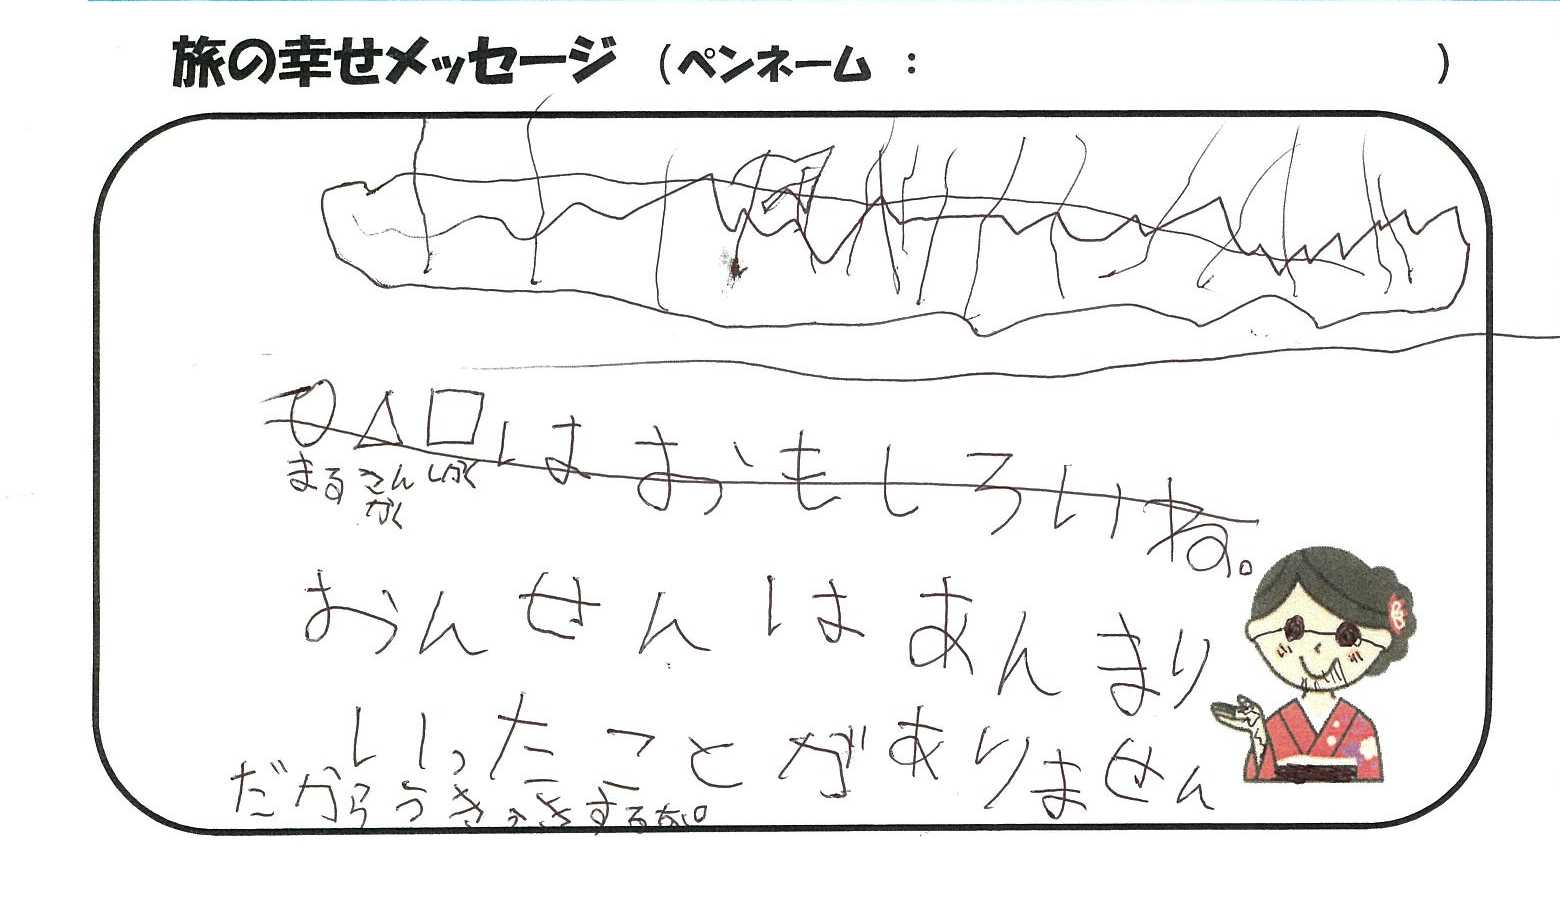 旅の幸せメッセージ (ペンネーム : )
〇△□はおもしろいね。
まる さんかく しかく
おんせんはあんまり
いったことがありません
だからうきうきするな。